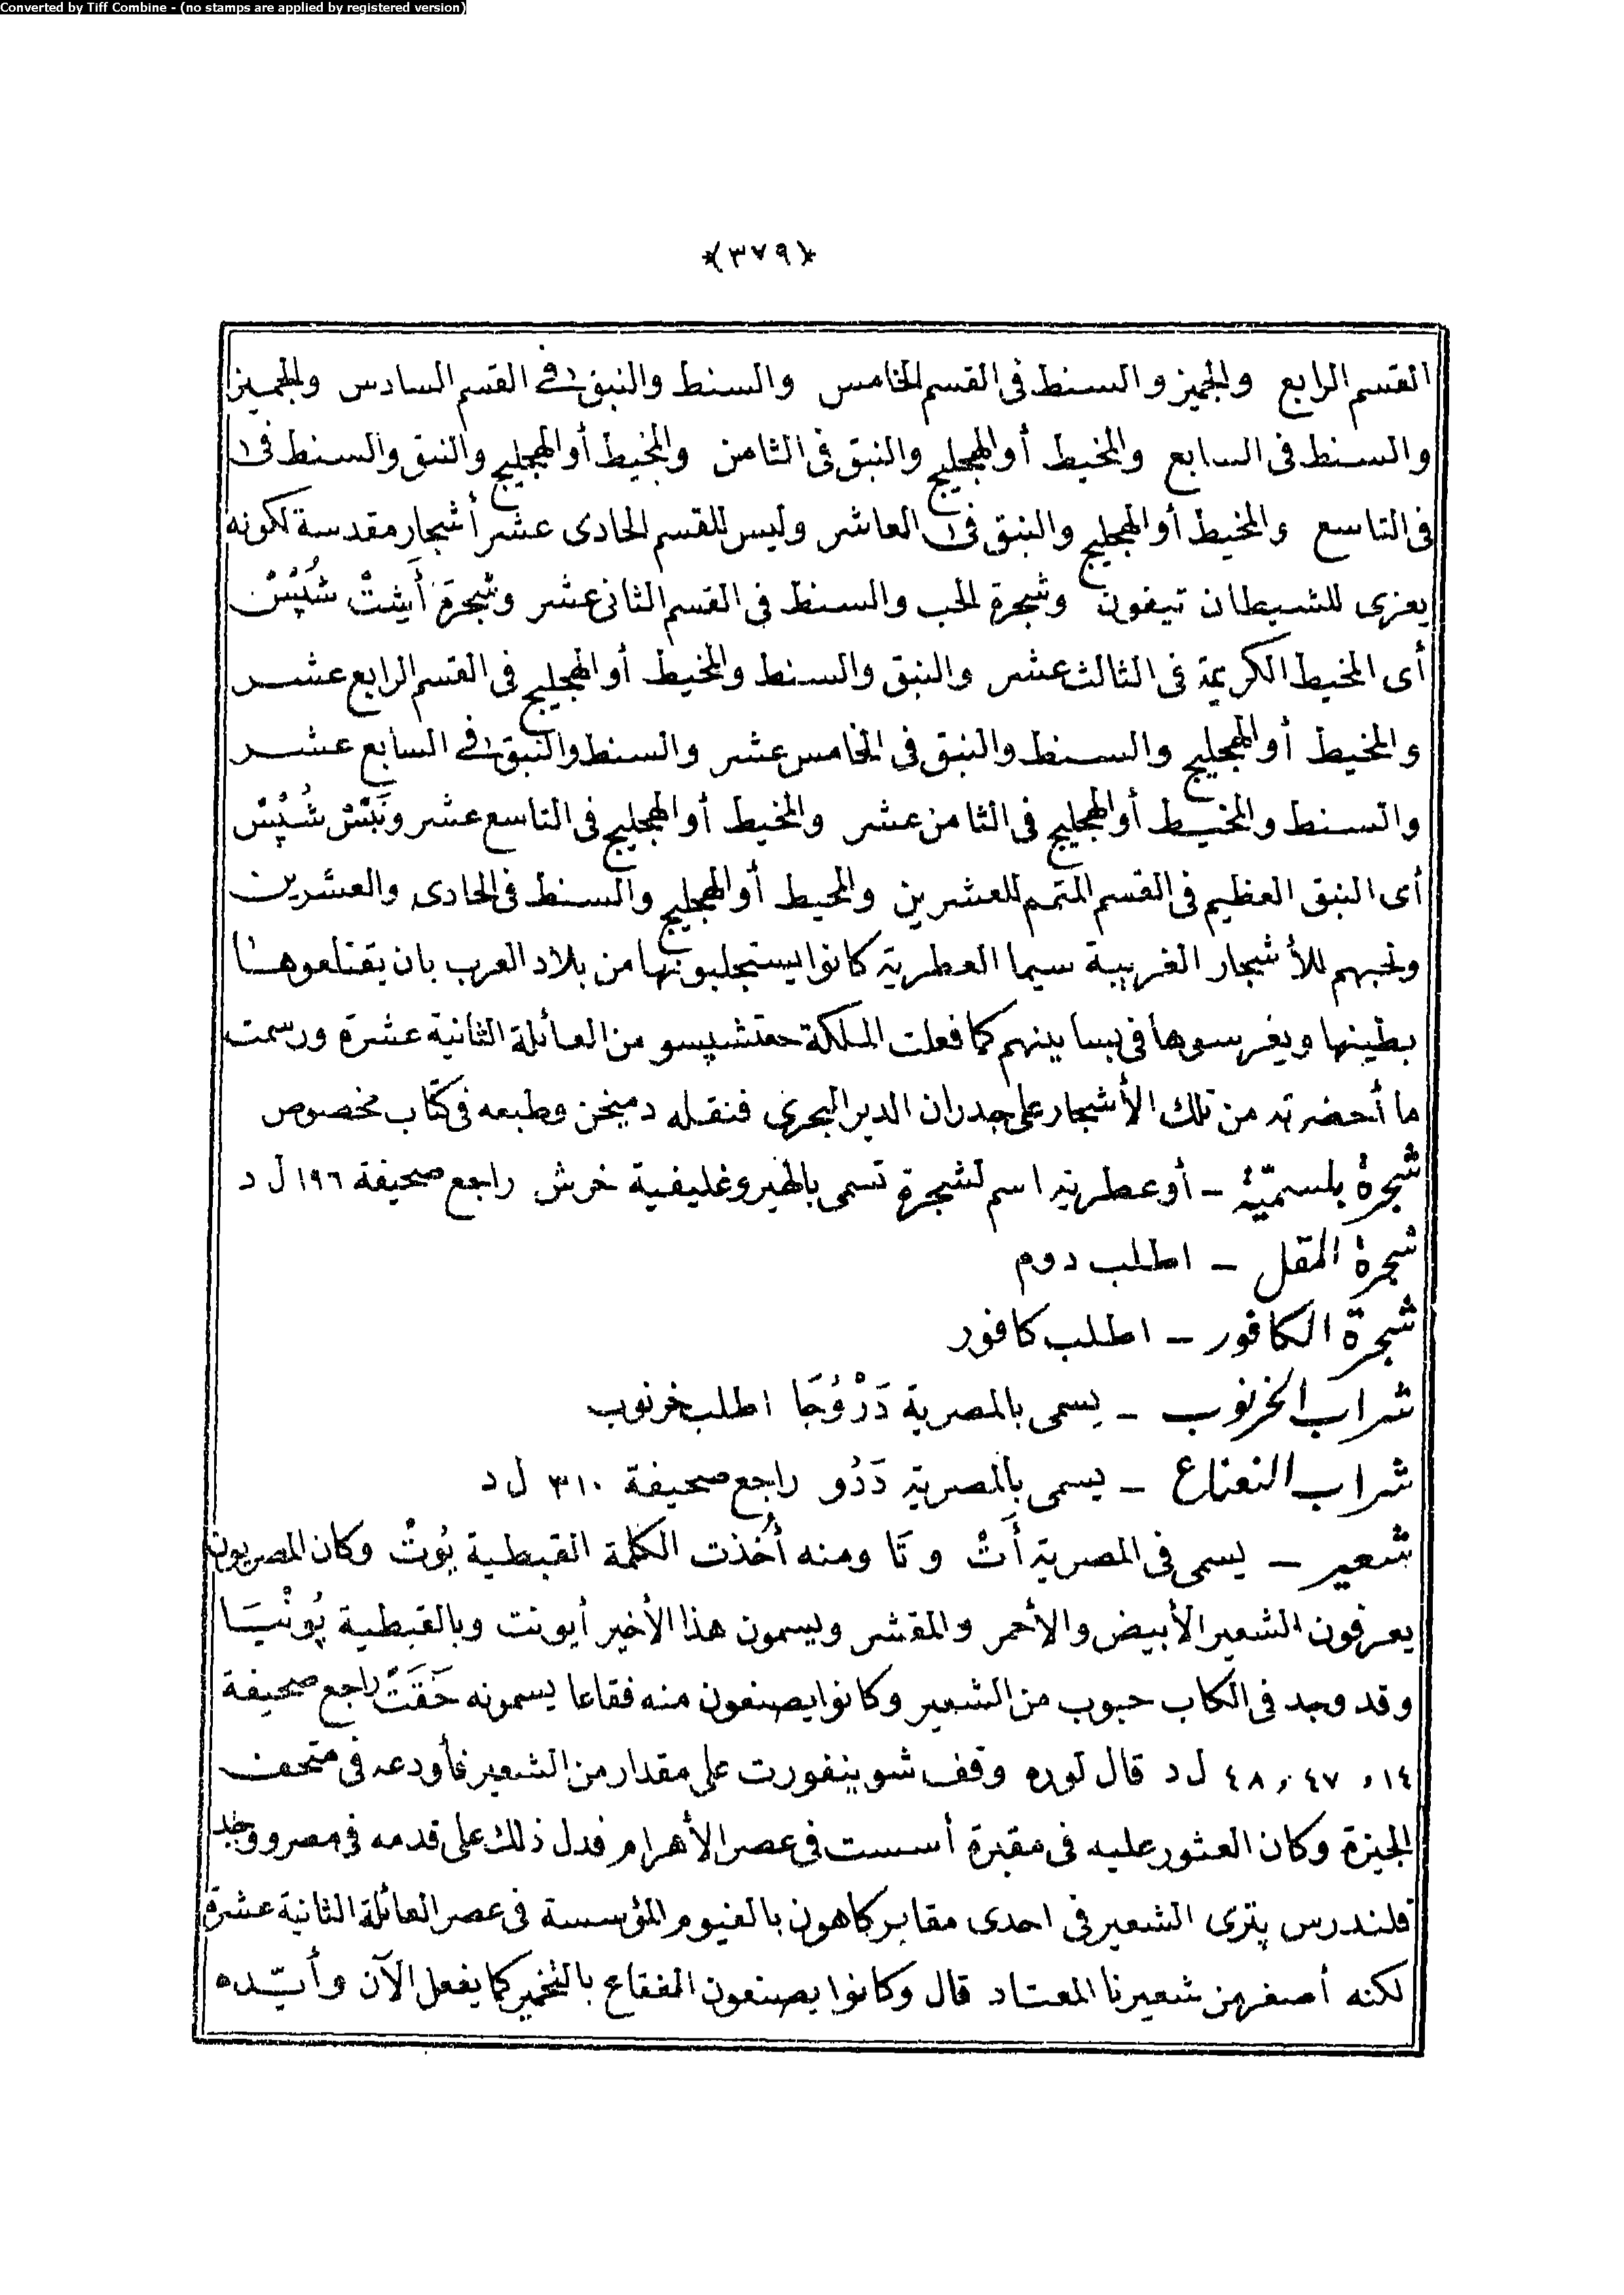 Converted by Tiff Combine - (no stamps are applied by registered version)
*(٣٧٩)*
القسم الرابع والجميز والسنط فى القسم الخامس والسنط والنبق فى القسم السادس والجميز
والسنط فى السابع والمخيط أو الهجليج والنبق فى الثامن والمخيط أو الهجليج والنبق والسنط فى
فى التاسع والمخيط أو الهجليج والنبق فى العاشر وليس للقسم الحادى عشر أشجار مقدسة لكونه
يعزى للشيطان تيفون وشجرة الحب والسنط فى القسم الثانى عشر وشجرة أَشِتْ شُپْسْ
أى المخيط الكريمة فى الثالث عشر والنبق والسنط والمخيط أو الهجليج فى القسم الرابع عشر
والمخيط أو الهجليج والسنط والنبق فى الخامس عشر والسنط والنبق فى السابع عشر
والسنط والمخيط أو الهجليج فى الثامن عشر والمخيط أو الهجليج فى التاسع عشر ونَبْسْ شُپْسْ
أى النبق العظيم فى القسم المتمم للعشرين والمخيط أو الهجليج والسنط فى الحادى والعشرين
ولحبهم للأشجار الغريبة سيما العطرية كانوا يستجلبونها من بلاد العرب بان يقتلعوها
بطينها ويغرسوها فى بساينهم كما فعلت الملكة حعتشپسو من العائلة الثانية عشرة ورسمت
ما أحضرته من تلك الأشجار على جدران الدير البحرى فنقله دميخن وطبعه فى كتاب مخصوص
شجرة بلسميّة - أو عطرية اسم لشجرة تسمى بالهيروغليفية خرش راجع صحيفة ١٩٦ ل د
شجرة المقل - اطلب دوم
شجرة الكافور - اطلب كافور
شراب الخرنوب - يسمى بالمصرية دَرْوُجَا اطلب خرنوب
شراب النعناع - يسمى بالمصرية دَدُو راجع صحيفة ٣١٠ ل د
شعير - يسمى فى المصرية أَتْ و تَا ومنه أخذت الكلمة القبطية يُوتْ وكان المصريون
يعرفون الشعير الأبيض والأحمر والمقشر ويسمون هذا الأخير أيونت وبالقبطية پُونْيَا
وقد وجد فى الكاب حبوب من الشعير وكانوا يصنعون منه فقاعا يسمونه حَقَتْ راجع صحيفة
١٤ ، ٤٧ ، ٤٨ ل د قال لوره وقف شوينفورت على مقدار من الشعير فأودعه فى متحف
الجيزة وكان العثور عليه فى مقبرة أسست فى عصر الأهرام فدل ذلك على قدمه فى مصر ووجد
فلندرس پترى الشعير فى احدى مقابر كاهون بالفيوم المؤسسة فى عصر العائلة الثانية عشرة
لكنه أصغر من شعيرنا المعتاد قال وكانوا يصنعون الفقاع بالتخمير كما يفعل الآن وأيّده